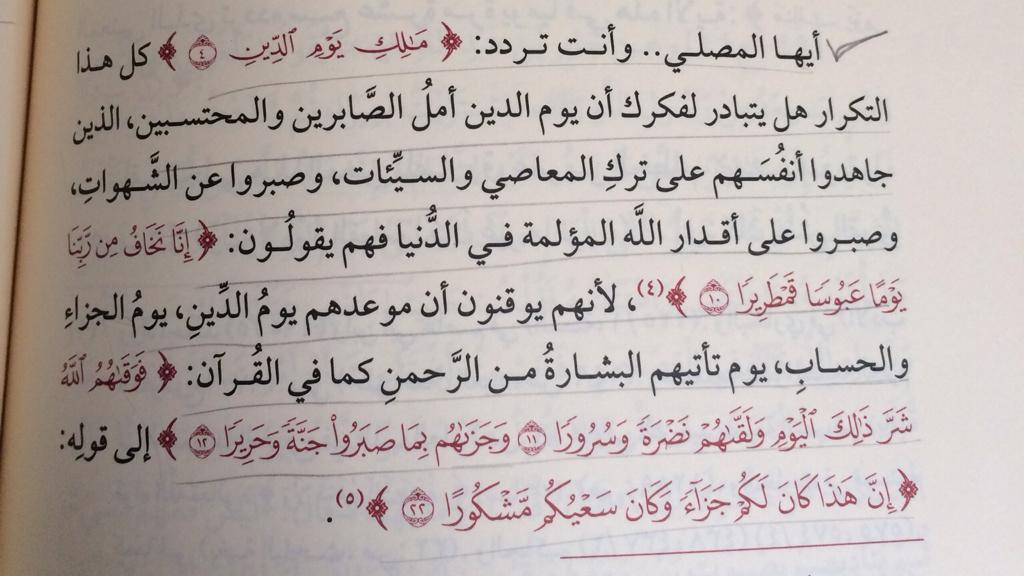 أيها المصلي.. وأنت تردد: ﴿ مَٰلِكِ يَوْمِ ٱلدِّينِ ٤ ﴾ كل هذا
التكرار هل يتبادر لفكرك أن يوم الدين أملُ الصَّابرين والمحتسبين، الذين
جاهدوا أنفُسَهم على تركِ المعاصي والسيِّئات، وصبروا عن الشَّهواتِ،
وصبروا على أقدار اللَّه المؤلمة في الدُّنيا فهم يقولُون: ﴿ إِنَّا نَخَافُ مِن رَّبِّنَا
يَوْمًا عَبُوسًا قَمْطَرِيرًا ١٠ ﴾(٤)، لأنهم يوقنون أن موعدهم يومُ الدِّينِ، يومُ الجزاءِ
والحسابِ، يوم تأتيهم البشارةُ من الرَّحمنِ كما في القُرآن: ﴿ فَوَقَىٰهُمُ ٱللَّهُ
شَرَّ ذَٰلِكَ ٱلْيَوْمِ وَلَقَّىٰهُمْ نَضْرَةً وَسُرُورًا ١١ وَجَزَىٰهُم بِمَا صَبَرُوا۟ جَنَّةً وَحَرِيرًا ١٢ ﴾ إلى قولِه:
﴿ إِنَّ هَٰذَا كَانَ لَكُمْ جَزَآءً وَكَانَ سَعْيُكُم مَّشْكُورًا ٢٢ ﴾(٥).